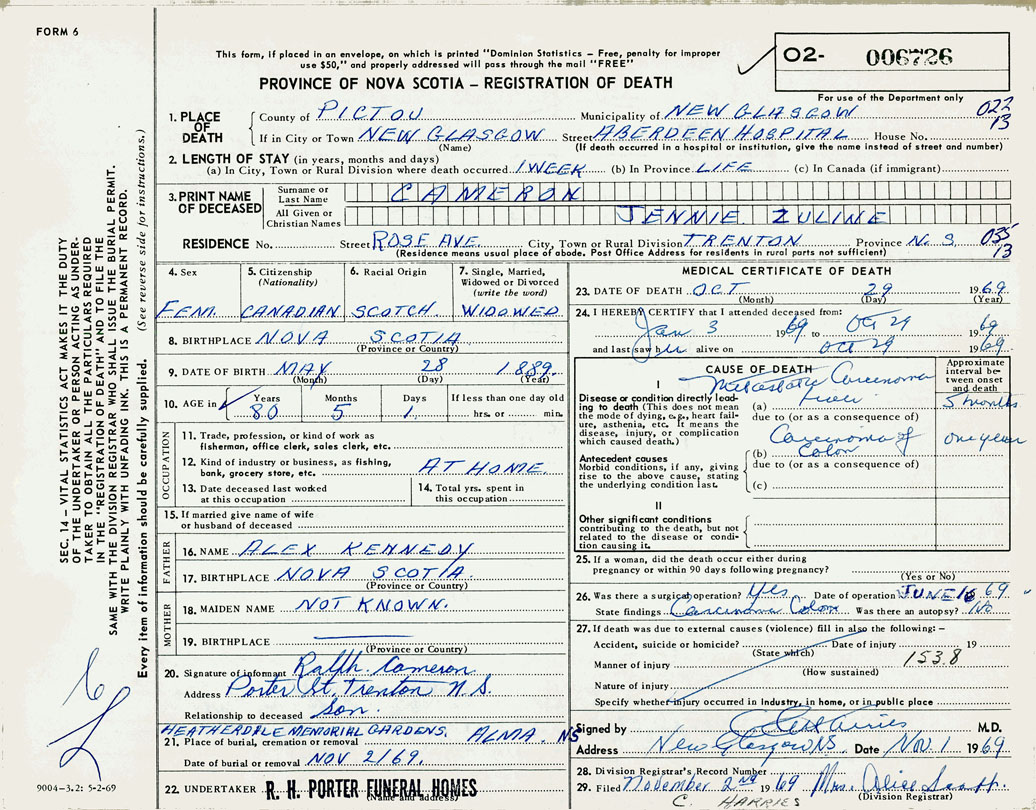 FORM 6
This form, if placed in an envelope, on which is printed "Dominion Statistics – Free, penalty for improper
use $50," and properly addressed will pass through the mail "FREE"
PROVINCE OF NOVA SCOTIA – REGISTRATION OF DEATH
O2- 006726
For use of the Department only
1. PLACE OF DEATH
County of PICTOU Municipality of NEW GLASGOW 022
If in City or Town NEW GLASGOW Street ABERDEEN HOSPITAL House No. 13
(Name) (If death occurred in a hospital or institution, give the name instead of street and number)
2. LENGTH OF STAY (in years, months and days)
(a) In City, Town or Rural Division where death occurred 1 WEEK (b) In Province LIFE (c) In Canada (if immigrant)
3. PRINT NAME OF DECEASED
Surname or Last Name CAMERON
All Given or Christian Names JENNIE ZULINE
RESIDENCE No. Street ROSE AVE. City, Town or Rural Division TRENTON Province N. S. 035
(Residence means usual place of abode. Post Office Address for residents in rural parts not sufficient) 13
4. Sex
FEM.
5. Citizenship
(Nationality)
CANADIAN
6. Racial Origin
SCOTCH.
7. Single, Married,
Widowed or Divorced
(write the word)
WIDOWED.
8. BIRTHPLACE NOVA SCOTIA
(Province or Country)
9. DATE OF BIRTH MAY 28 1889.
(Month) (Day) (Year)
10. AGE in Years Months Days If less than one day old
80 5 1 hrs. or min.
OCCUPATION
11. Trade, profession, or kind of work as
fishermen, office clerk, sales clerk, etc.
12. Kind of industry or business, as fishing,
bank, grocery store, etc. AT HOME.
13. Date deceased last worked
at this occupation
14. Total yrs. spent in
this occupation
15. If married give name of wife
or husband of deceased
FATHER
16. NAME ALEX KENNEDY
17. BIRTHPLACE NOVA SCOTIA.
(Province or Country)
MOTHER
18. MAIDEN NAME NOT KNOWN.
19. BIRTHPLACE
(Province or Country)
20. Signature of informant Ralph Cameron
Address Porter St, Trenton N. S.
Relationship to deceased Son.
HEATHERDALE MEMORIAL GARDENS, ALMA. NS
21. Place of burial, cremation or removal
Date of burial or removal NOV 2/69.
22. UNDERTAKER R. H. PORTER FUNERAL HOMES
(Name and address)
MEDICAL CERTIFICATE OF DEATH
23. DATE OF DEATH OCT 29 1969.
(Month) (Day) (Year)
24. I HEREBY CERTIFY that I attended deceased from:
Jan 3 1969 to Oct 29 1969
and last saw her alive on Oct 29 1969.
CAUSE OF DEATH
Approximate
interval be-
tween onset
and death
I
Metastatic Carcinoma
Disease or condition directly lead-
ing to death (This does not
mean the mode of dying, e.g., heart fail-
ure, asthenia, etc. It means the
disease, injury, or complication
which caused death.)
(a) Liver 5 months
due to (or as a consequence of)
Carcinoma of
(b) Colon one year
due to (or as a consequence of)
(c)
Antecedent causes
Morbid conditions, if any, giving
rise to the above cause, stating
the underlying condition last.
II
Other significant conditions
contributing to the death, but not
related to the disease or condi-
tion causing it.
25. If a woman, did the death occur either during
pregnancy or within 90 days following pregnancy?
(Yes or No)
26. Was there a surgical operation? Yes Date of operation JUNE 16 69.
State findings Carcinoma Colon Was there an autopsy? No
27. If death was due to external causes (violence) fill in also the following:–
Accident, suicide or homicide? Date of injury 19
(State which) 153.8
Manner of injury
(How sustained)
Nature of injury
Specify whether injury occurred in Industry, in home, or in public place
Signed by M.D.
Address New Glasgow NS Date Nov. 1 1969
28. Division Registrar's Record Number
29. Filed November 2nd 1969 Mrs. Alice
(Division Registrar)
C. HARRIES
SEC. 14 – VITAL STATISTICS ACT MAKES IT THE DUTY
OF THE UNDERTAKER OR PERSON ACTING AS UNDER-
TAKER TO OBTAIN ALL THE PARTICULARS REQUIRED
IN THE "REGISTRATION OF DEATH" AND TO FILE THE
SAME WITH THE DIVISION REGISTRAR WHO SHALL ISSUE THE BURIAL PERMIT.
WRITE PLAINLY WITH UNFADING INK. THIS IS A PERMANENT RECORD.
Every item of information should be carefully supplied. (See reverse side for instructions.)
9004–3.2: 5-2-69